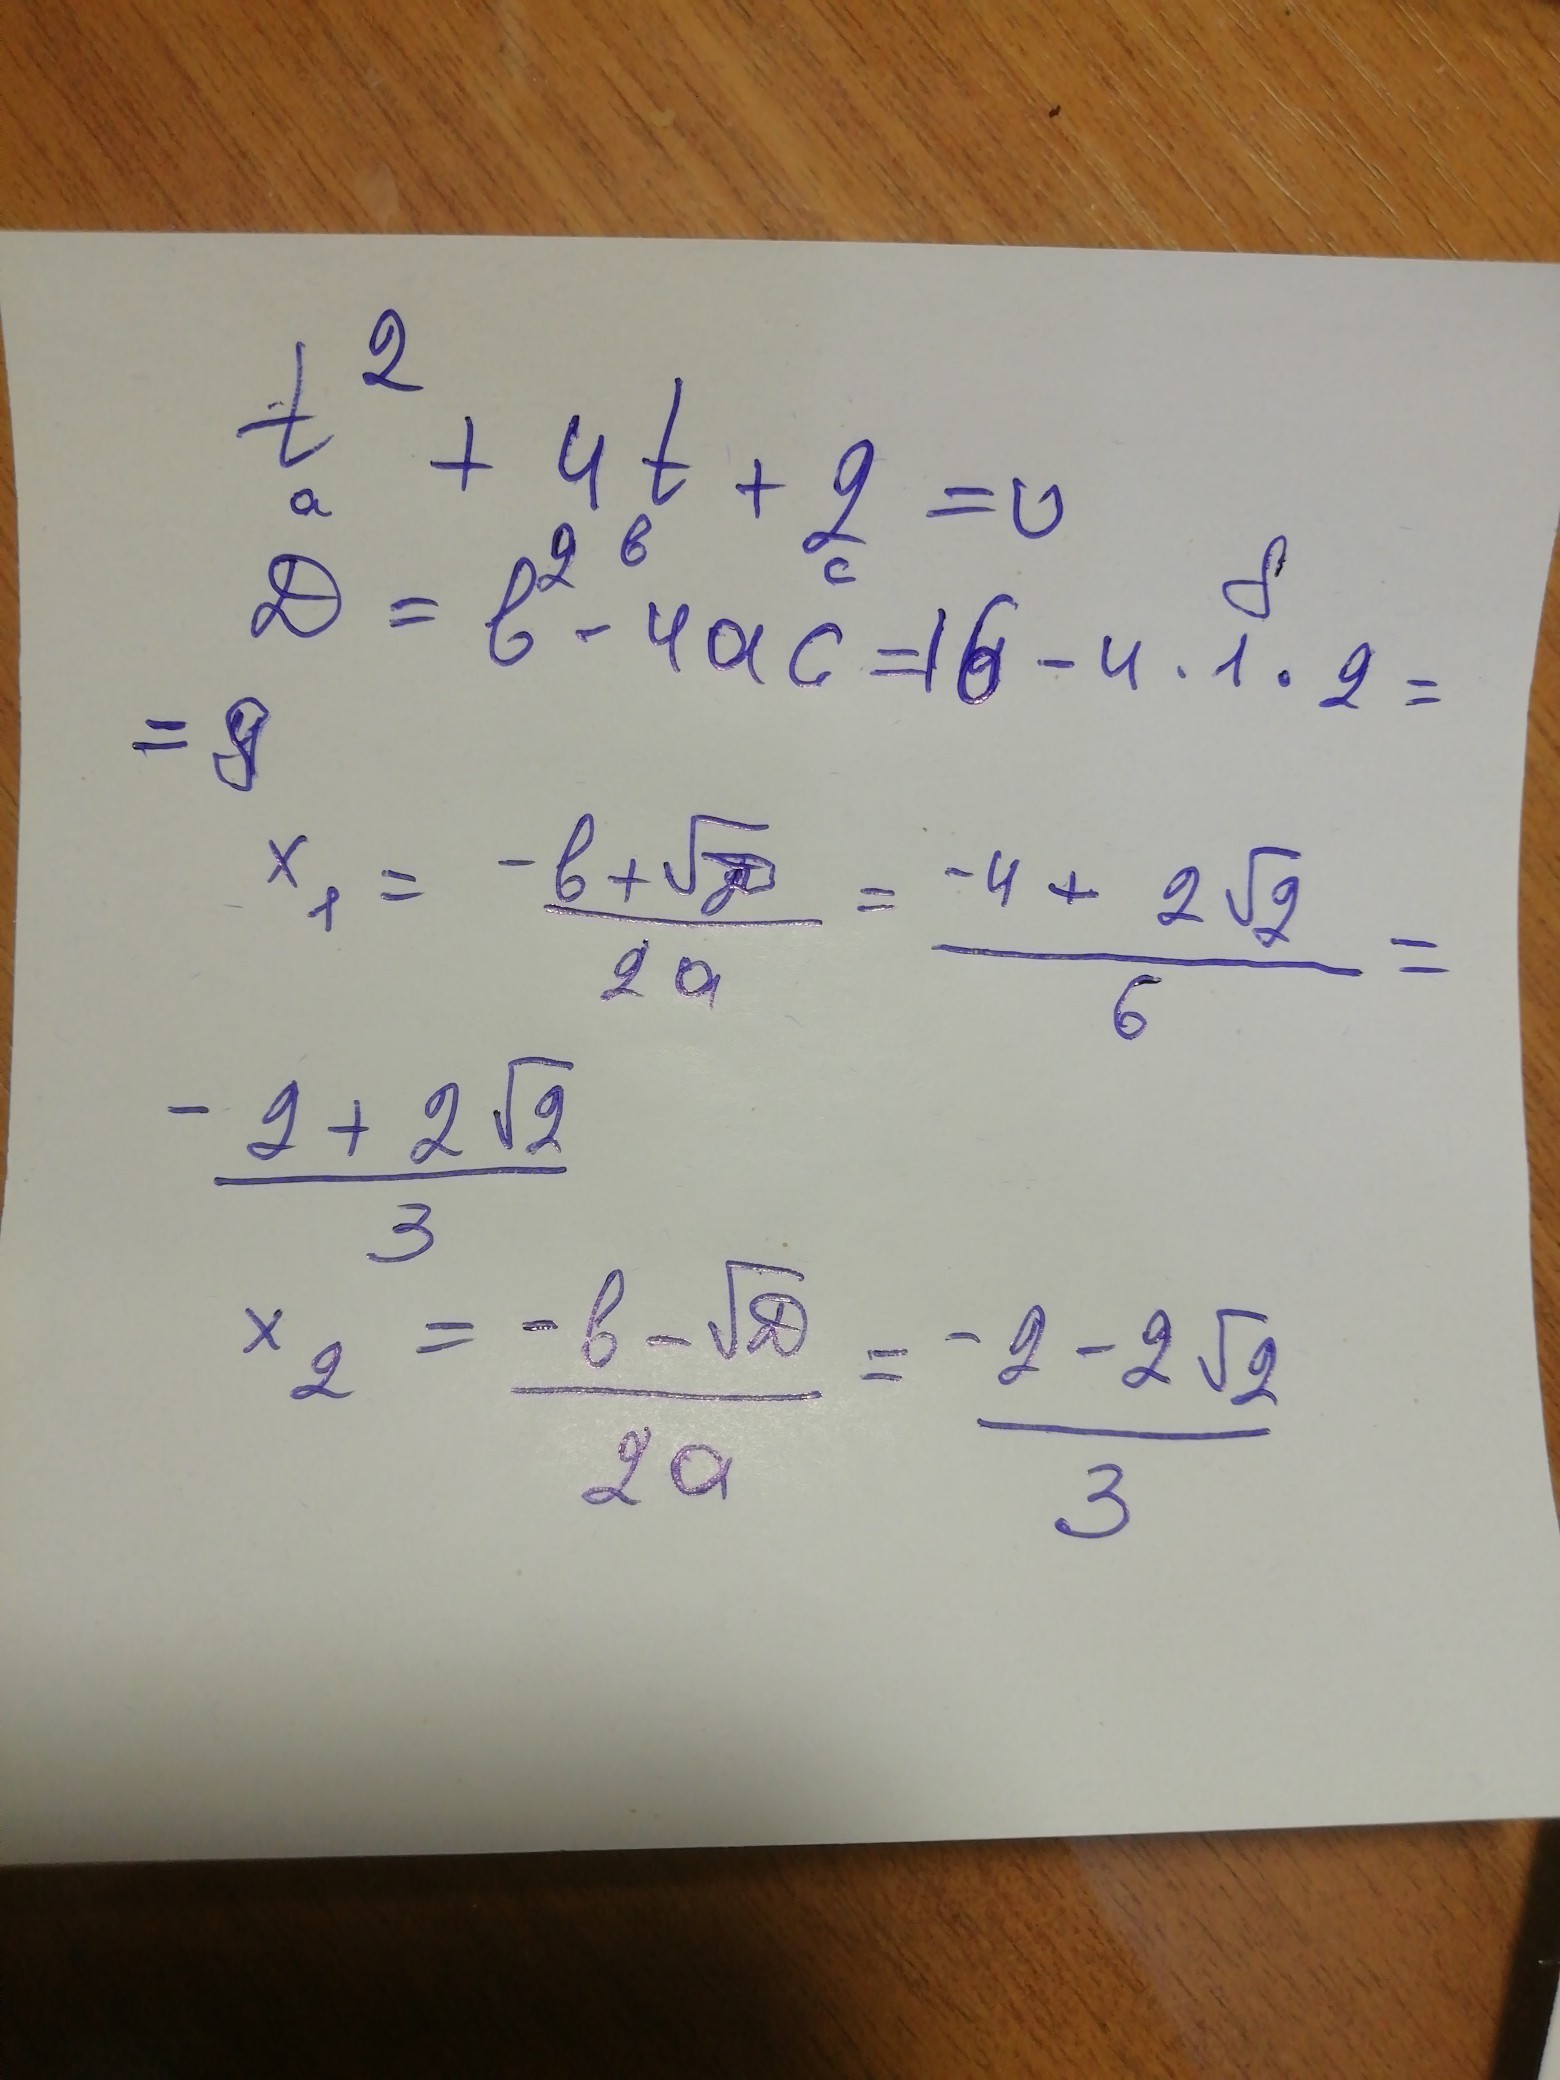 t² + 4t + 2 = 0
a в c
D = в² - 4ac = 16 - 4 · 1 · 2 =
8
= 8
x₁ = (-в + √D)/(2a) = (-4 + 2√2)/6 =
(-2 + 2√2)/3
x₂ = (-в - √D)/(2a) = (-2 - 2√2)/3